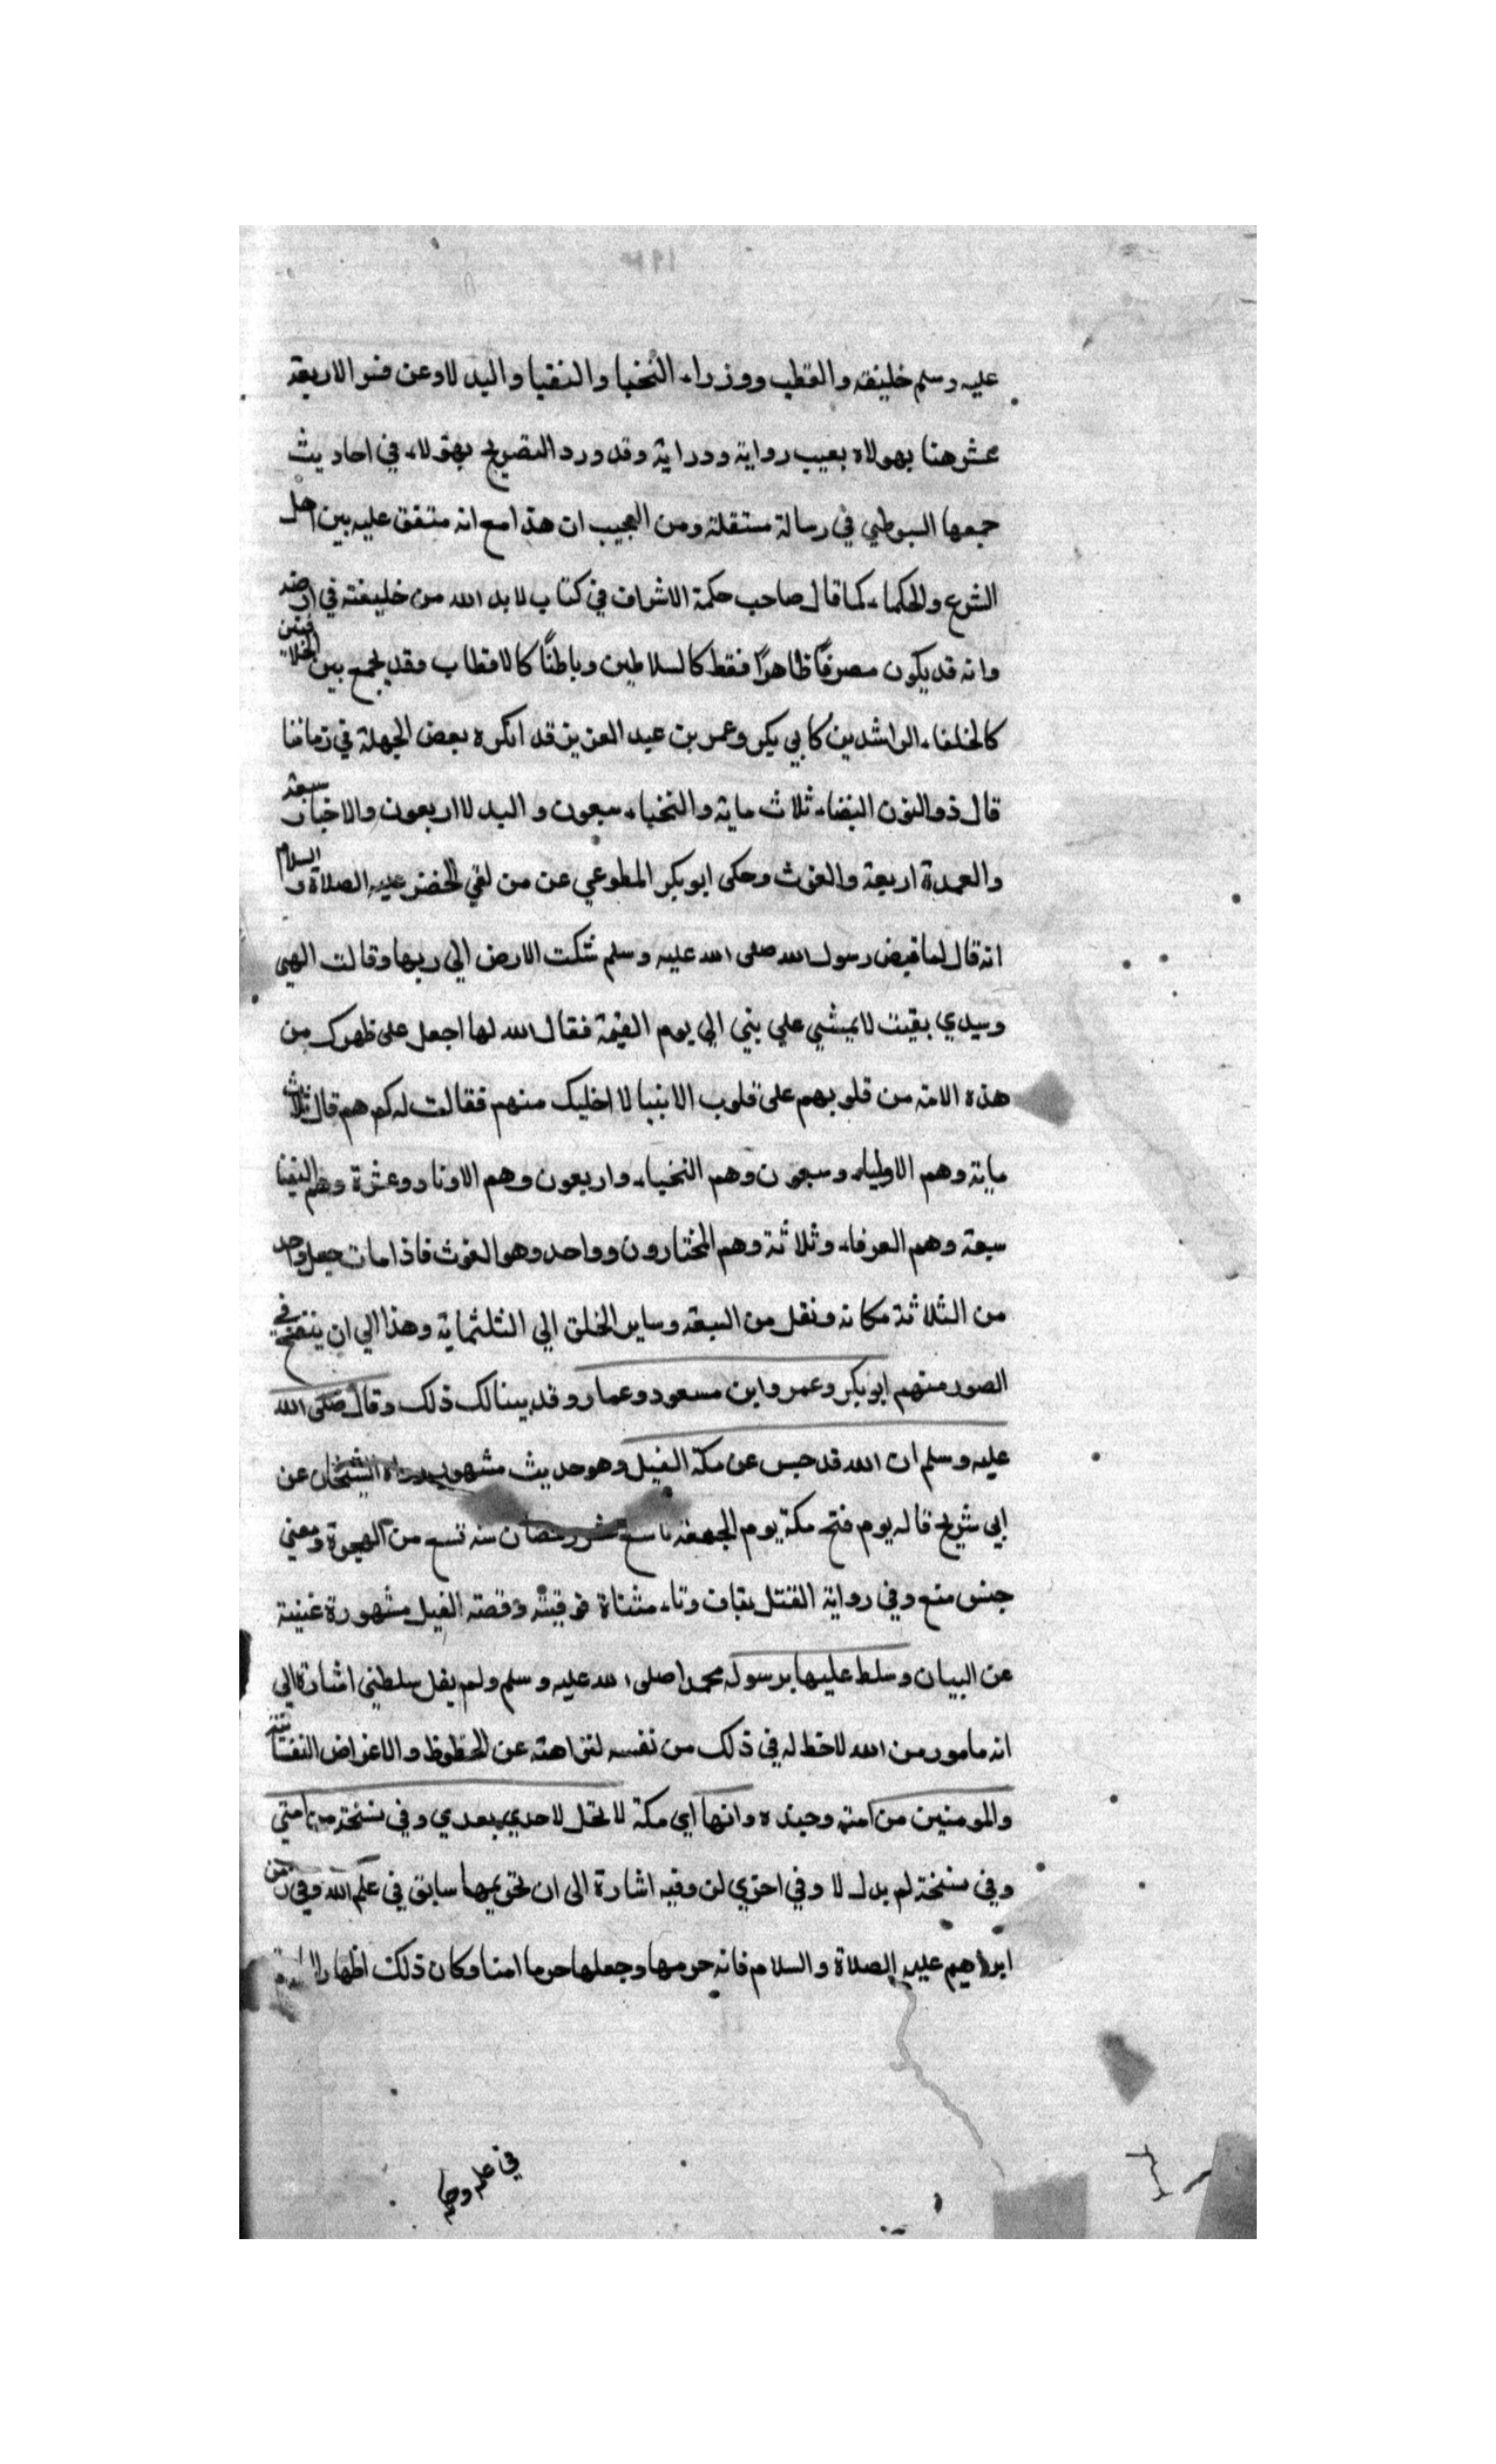 عليه وسلم خليفة والقطب ووزراء النخبا والنقبا والبدلاوعن فسر الاربعة
عشر هنا بهولاء بعيب رواية ودراية وقد ورد التصريح بهولاء في احاديث
جمعها السيوطي في رسالة مستقلة ومن العجيب ان هذا مع انه متفق عليه بين اهل
الشرع والحكماء كما قال صاحب حكمة الاشراف في كتاب لا بد الله من خليفة في ارضه
وانه قد يكون مصرفًا ظاهرًا فقط كالسلاطين وباطنًا كالاقطاب وقد يجمع بين الخلافتين
كالخلفاء الراشدين كابي بكر وعمر بن عبد العزيز قد انكره بعض الجهلة في زماننا
قال ذو النون النقباء ثلاث ماية والنخباء سبعون والبدلا اربعون والاخيار سبعة
والعمدة اربعة والغوث وحكى ابو بكر المطوعي عن من لقي الخضر عليه الصلاة و السلام
انه قال لما قبض رسول الله صلى الله عليه وسلم شكت الارض الي ربها وقالت الهي
وسيدي بقيت لا يمشي علي نبي الي يوم القيمة فقال الله لها اجعل على ظهرك من
هذه الامة من قلوبهم على قلوب الانبيا لا اخليك منهم فقالت له كم هم قال ثلاث
ماية وهم الاولياء وسبعون وهم النخباء واربعون وهم الاوتاد وعشرة وهم النقبا
سبعة وهم العرفاء وثلاثة وهم المختارون وواحد وهو الغوث فاذا مات جعل واحد
من الثلاثة مكانه ونقل من السبعة وساير الخلق الي الثلثماية وهذا الي ان ينفخ في
الصور منهم ابو بكر وعمر وابن مسعود وعمار وقد بينا لك ذلك وقال صلى الله
عليه وسلم ان الله قد حبس عن مكة الفيل وهو حديث مشهور رواه الشيخان عن
ابي شريح قاله يوم فتح مكة يوم الجمعة تاسع عشر رمضان سنة تسع من الهجرة ومعني
حبس منع وفي رواية القتل بقاف وتاء مثناة فوقيه وقصة الفيل مشهورة غنية
عن البيان وسلط عليها برسوله محمدا صلى الله عليه وسلم ولم يقل سلطني اشارة الي
انه مامور من الله لا حظ له في ذلك من نفسه لنزاهته عن الحظوظ والاغراض النفسانية
والمومنين من امته وجنده وانها اي مكة لا تحل لاحد بعدي وفي نسخة من امتي
وفي نسخة لم بدل لا وفي اخري لن وفيه اشارة الى ان تحريمها سابق في علم الله وفي زمن
ابراهيم عليه الصلاة والسلام فانه حرمها وجعلها حرما امنا وكان ذلك اظهارا
في علم